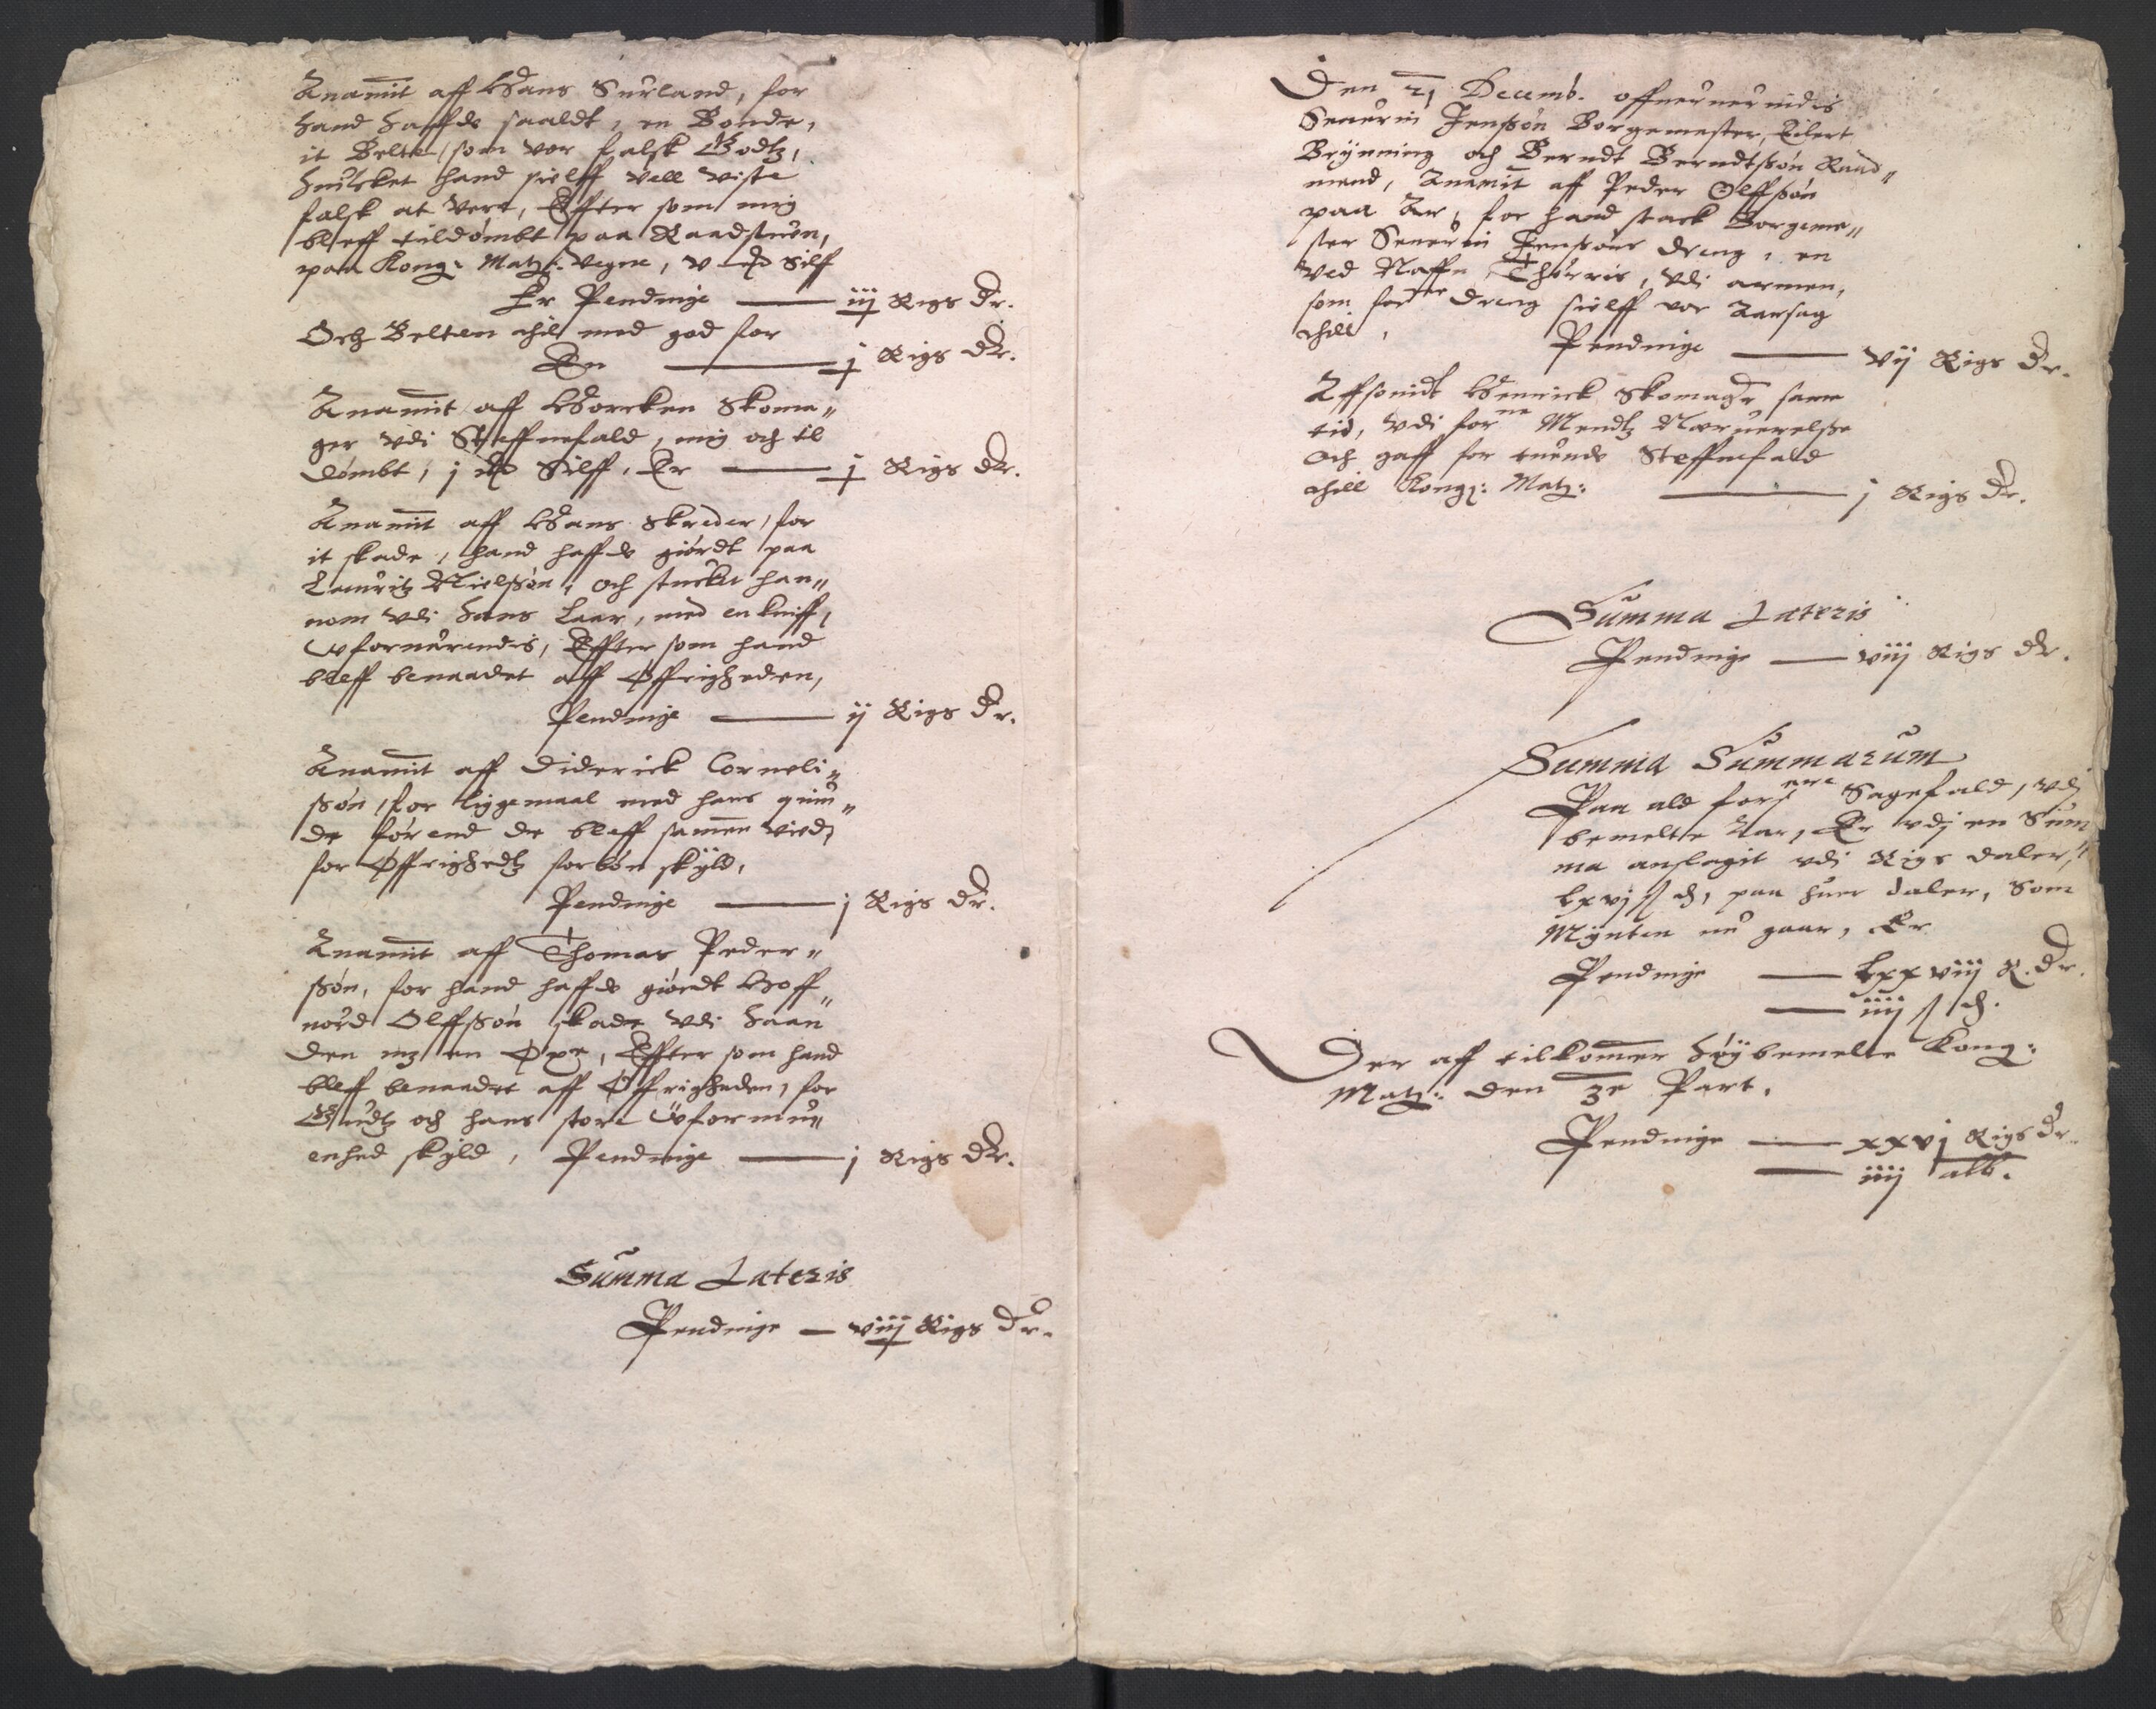 Anamit aff Hans Surland, for
hand haffde saaldt, en Bonde,
it Belte, som var falsk Godtz,
huilcket hand sielff vell viste
falsk at vere, Effter som mig
bleff tildømbt paa Raadstuen,
paa Kong: Matz: vegne, v Silff
Er Pendinge — iij Rigs Dr.
Och Belten til med god for
En — j Rigs Dr.
Anamit aff Skoma„
ger vdi Steffnefald, mig och til
dømbt, j Silff, Er — j Rigs Dr.
Anamit aff Hans Skreder, for
it skade, hand haffde giørdt paa
Lauritz Nielssøn, och stucket han„
nom vdi hans Laar, med en kniff,
vforuarendis, Effter som hand
bleff benaadet aff Øffrigheden,
Pendinge — ij Rigs Dr.
Anamit aff Diderick Corneli„
ssøn, for liggemaal med hans quin„
de før end de bleff samen viedt
for Øffrighedtz forbøn skyld,
Pendinge — j Rigs Dr.
Anamit aff Thomas Peder„
ssøn, for hand haffde giørdt
Olffssøn skade vdi haan
den mz en Øxe, Effter som hand
bleff benaadet aff Øffrigheden, for
Gudtz och hans store vformu„
enhed skyld, Pendinge — j Rigs Dr.
Summa Lateris
Pendinge — viij Rigs Dr.
Den 21 Decemb. offueruerindis
Seuerin Jenssøn Borgemester, Eilert
Brynning och Berndt Berndtssøn Raad„
mend, Anamit aff Peder Olffssøn
paa Ar, for hand stack Borgeme„
ster Seuerin Jenssøns dreng, en
ved Naffn Thørris, vdi armen,
som forne dreng sielff var Aarsag
till, Pendinge — vij Rigs Dr.
Affsonidt Henrick Skomager same
tid, vdi forne Mendtz Neruerelsse
Och gaff for tuende Steffnefald
till Kong: Matz: — j Rigs Dr.
Summa Lateris
Pendinge — viij Rigs Dr.
Summa Summarum
Paa ald forsne Sagefald, vdj
bemelte Aar, Er vdj en Sum
ma anslagit vdi Rigs daler,
lxvj ß d, paa huer daler, Som
Mynten nu gaar, Er
Pendinge — lxxviij R. Dr.
— iiij ß d.
Der aff tilkommer høybemelte Kong:
Matz: den 3e Part.
Pendinge — xxvj Rigs Dr.
— iiij alb.